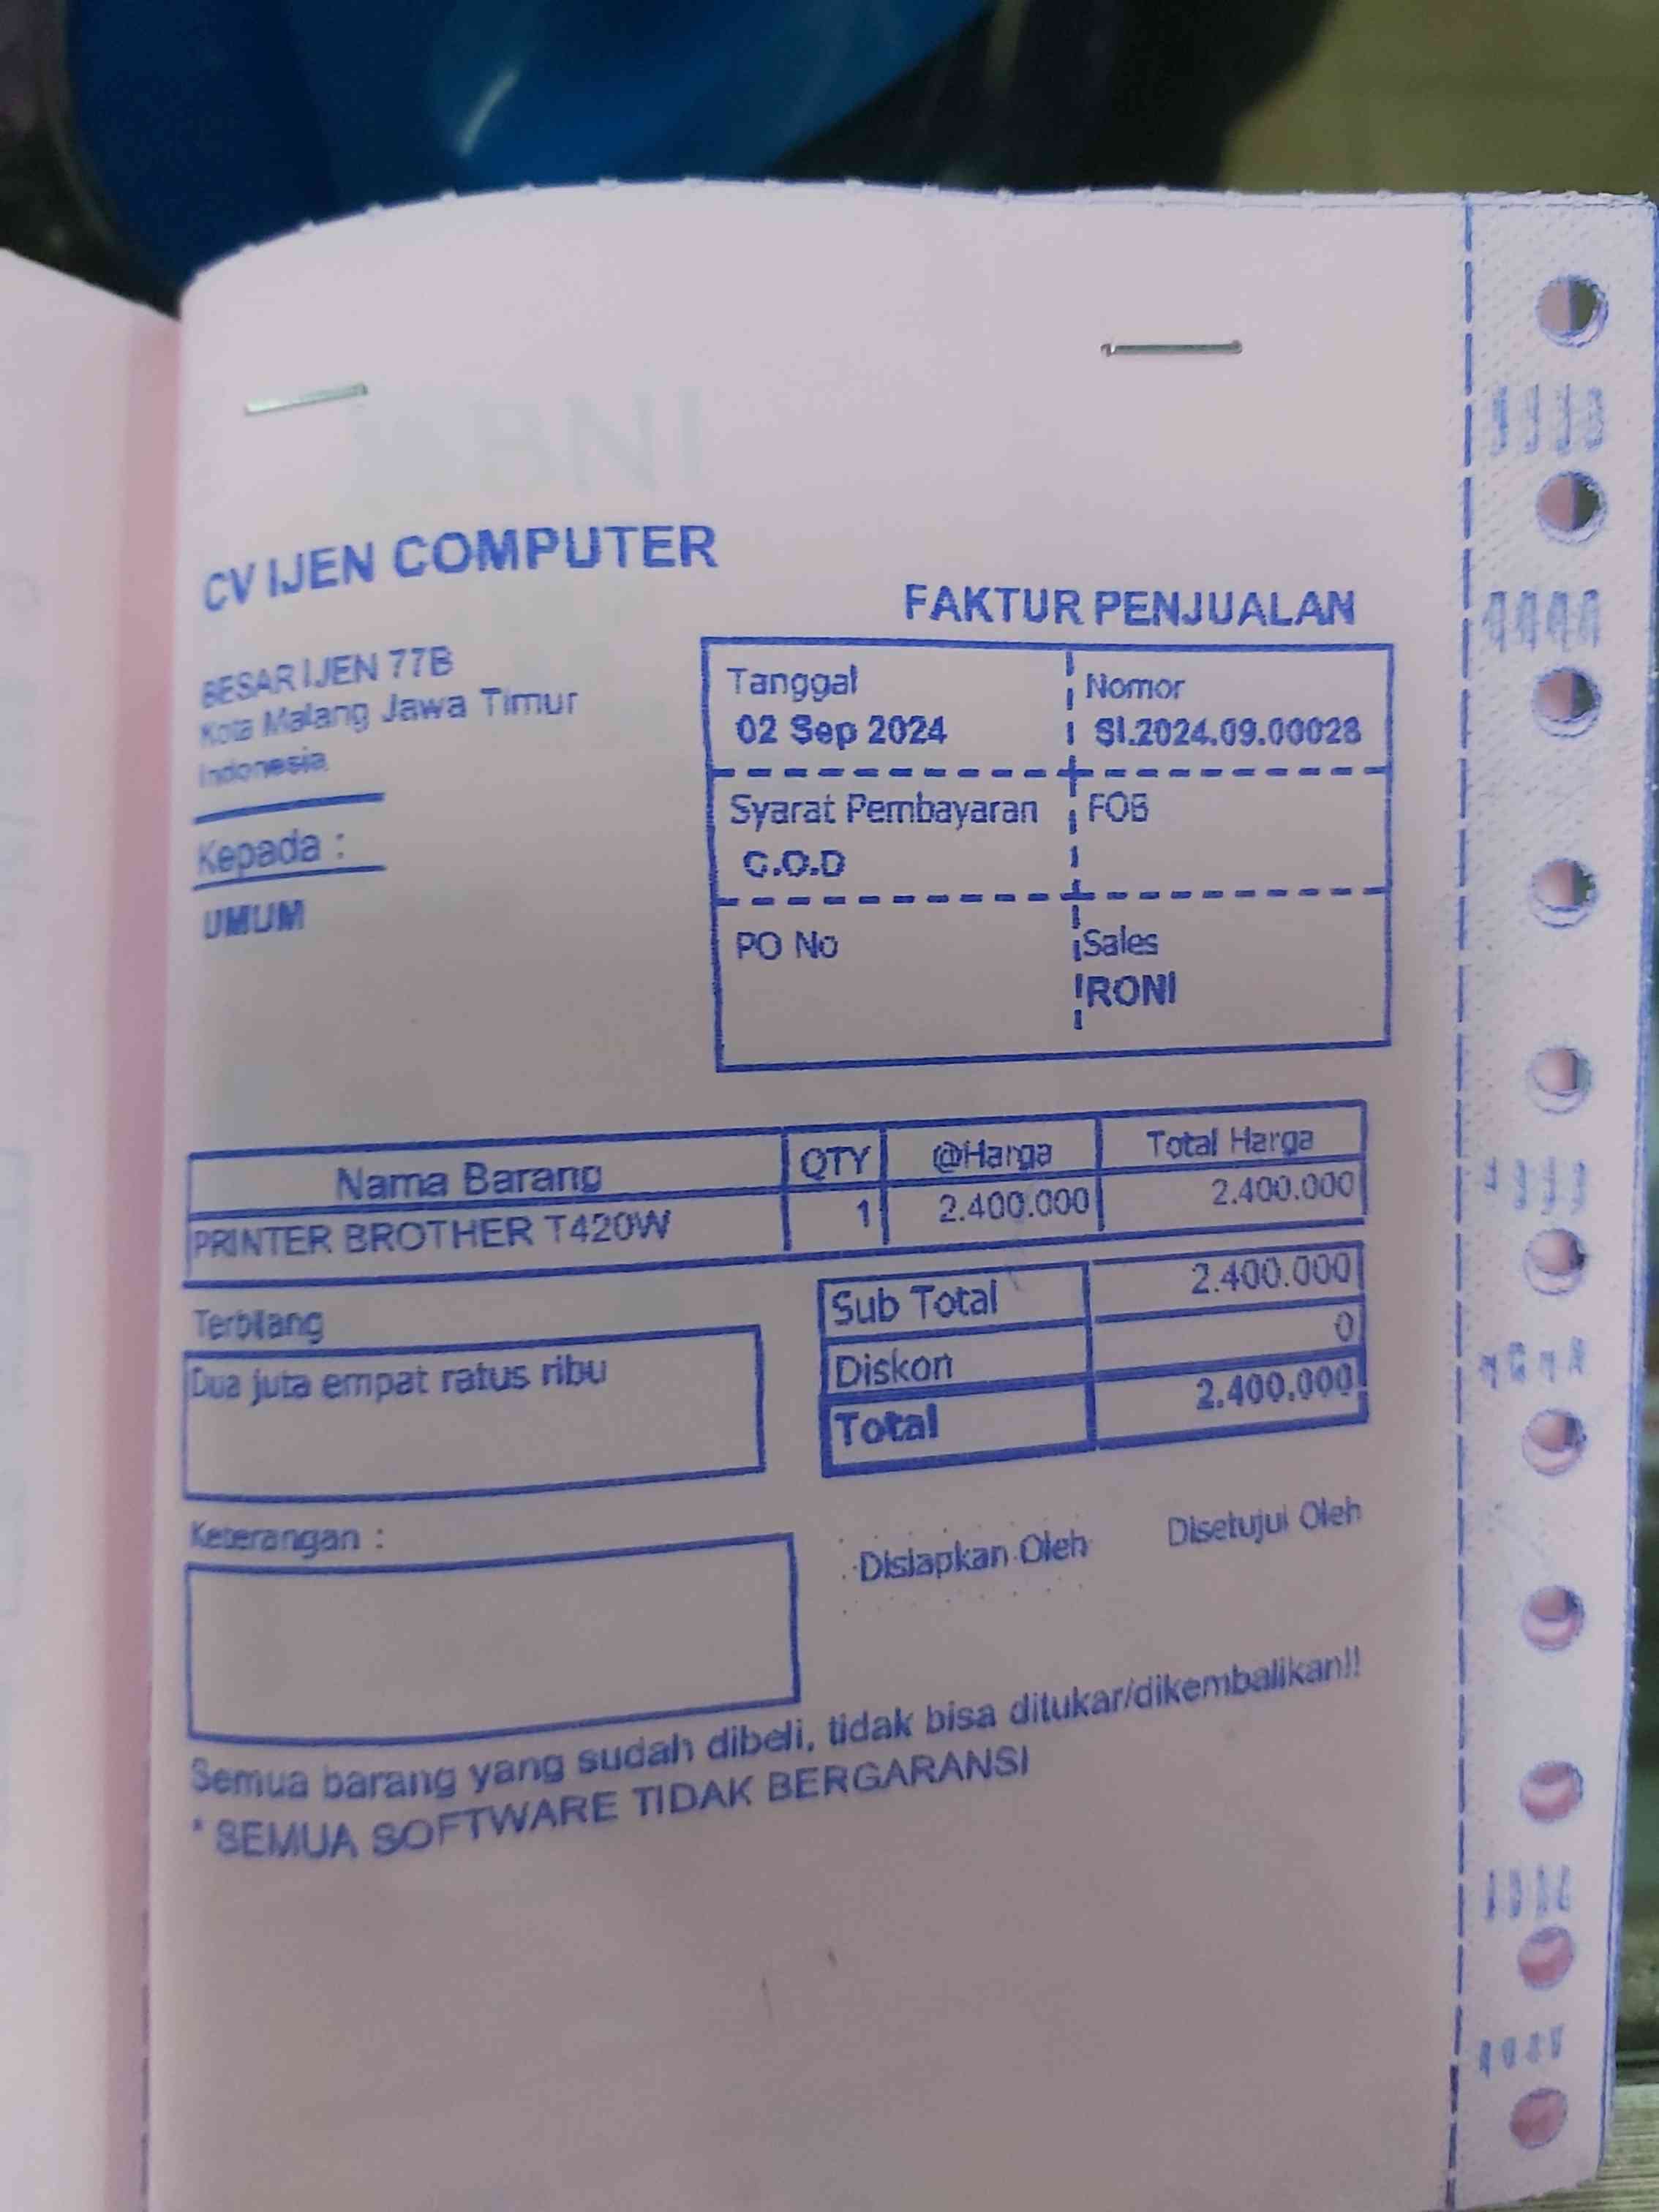 BNI
CV IJEN COMPUTER
FAKTUR PENJUALAN
BESAR IJEN 77B
Kota Malang Jawa Timur
Indonesia
Kepada :
UMUM
Tanggal
02 Sep 2024
Nomor
SI.2024.09.00028
Syarat Pembayaran
C.O.D
FOB
PO No
Sales
RONI
Nama Barang QTY @Harga Total Harga
PRINTER BROTHER T420W 1 2.400.000 2.400.000
Sub Total 2.400.000
Diskon 0
Total 2.400.000
Terbilang
Dua juta empat ratus ribu
Keterangan :
Disiapkan Oleh Disetujui Oleh
Semua barang yang sudah dibeli, tidak bisa ditukar/dikembalikan!!
* SEMUA SOFTWARE TIDAK BERGARANSI